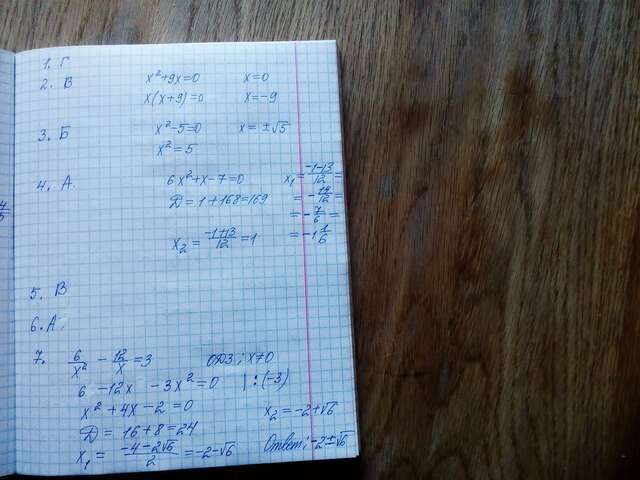 1. Г
2. В x²+9x=0 x=0
x(x+9)=0 x=-9
3. Б x²-5=0 x=±√5
x²=5
4. А. 6x²+x-7=0 x₁= (-1-13)/12 =
Д=1+168=169 = -14/12 =
= -7/6 =
x₂= (-1+13)/12 =1 = -1 1/6
5. В
6. А.
7. 6/x² - 12/x =3 ОДЗ; x≠0
6 -12x -3x²=0 |:(-3)
x²+4x-2=0 x₂=-2+√6
Д= 16+8=24
x₁= (-4-2√6)/2 =-2-√6 Ответ; -2±√6
4/5